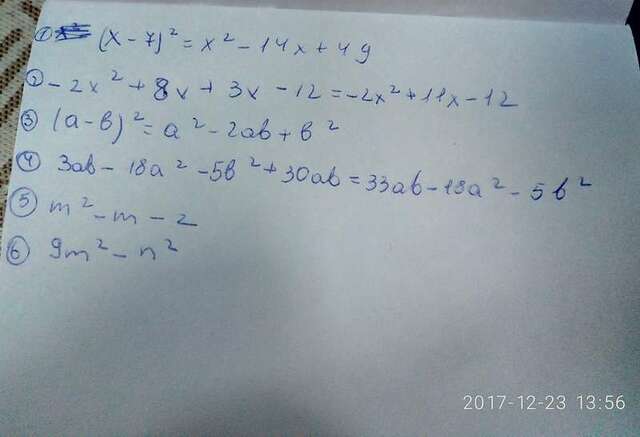 ① (x - 7)² = x² - 14x + 49
② - 2x² + 8x + 3x - 12 = -2x² + 11x - 12
③ (a - b)² = a² - 2ab + b²
④ 3ab - 18a² - 5b² + 30ab = 33ab - 18a² - 5b²
⑤ m² - m - 2
⑥ 9m² - n²
2017-12-23 13:56